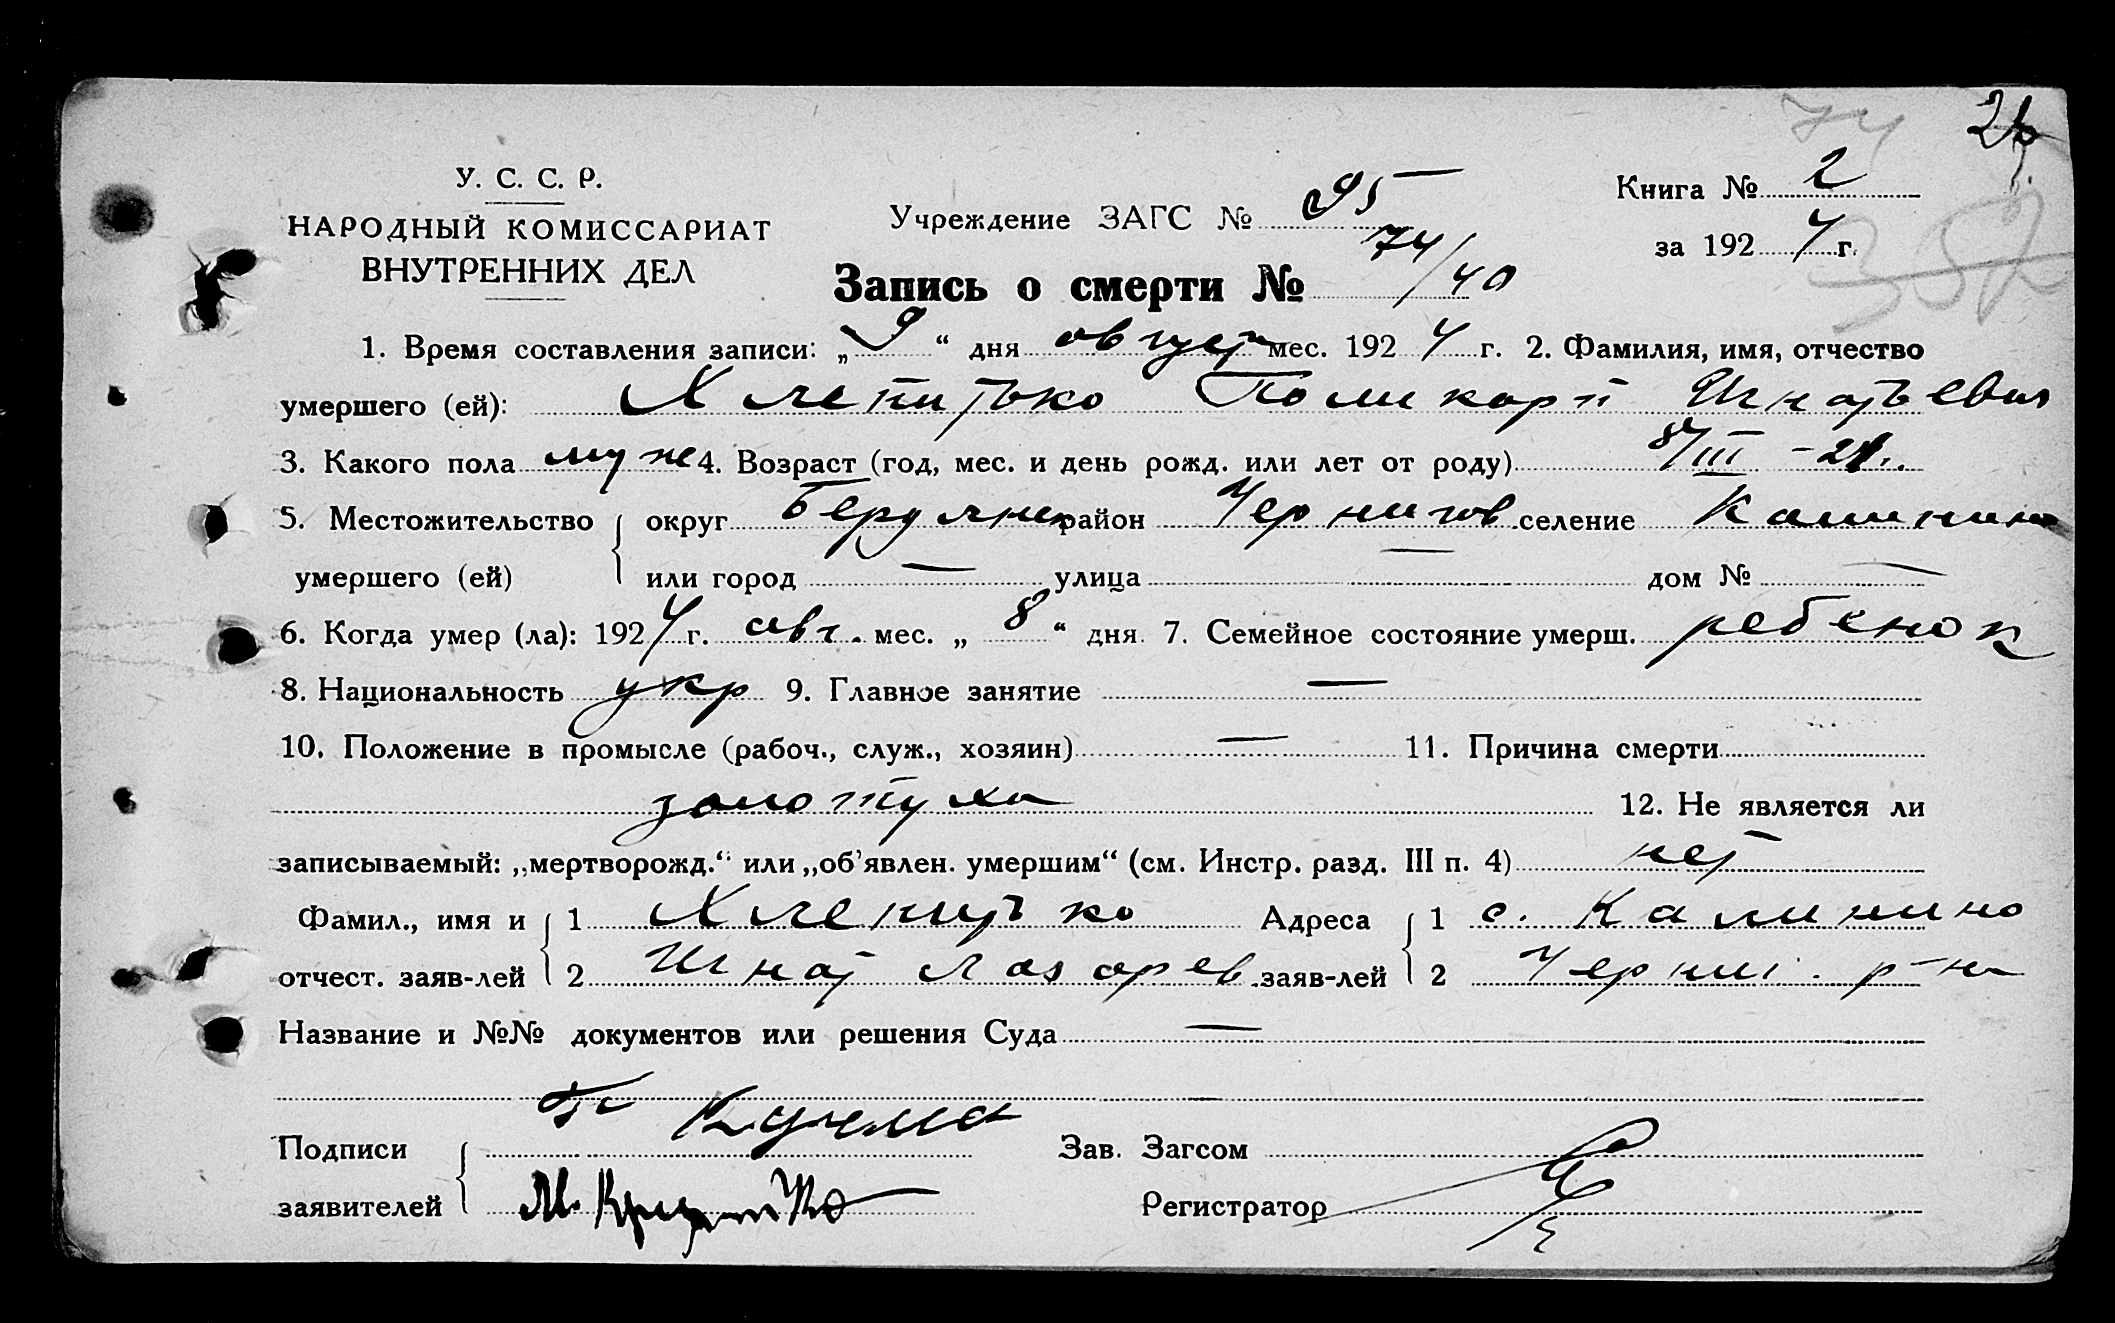 74 26
У. С. С. Р.
НАРОДНЫЙ КОМИССАРИАТ
ВНУТРЕННИХ ДЕЛ
Учреждение ЗАГС № 95
Книга № 2
за 1924 г.
352
Запись о смерти № 74/40
1. Время составления записи: „9“ дня август мес. 1924 г. 2. Фамилия, имя, отчество
умершего (ей): Хлепитько Поликарп Игнатьевич
3. Какого пола муж 4. Возраст (год, мес. и день рожд. или лет от роду) 8/III -21
5. Местожительство округ Бердянск район Чернигов селение Калинино
умершего (ей) или город — улица — дом № —
6. Когда умер (ла): 1924 г. авг. мес. „8“ дня. 7. Семейное состояние умерш. ребенок
8. Национальность укр 9. Главное занятие —
10. Положение в промысле (рабоч., служ., хозяин) — 11. Причина смерти
золотуха 12. Не является ли
записываемый: „мертворожд.“ или „об’явлен. умершим“ (см. Инстр. разд. III п. 4) нет
Фамил., имя и 1 Хлепитько Адреса 1 с. Калинино
отчест. заяв-лей 2 Игнат Лазарев. заяв-лей 2 Черниг. р-на
Название и №№ документов или решения Суда —
Кучма
Подписи Зав. Загсом
заявителей Регистратор